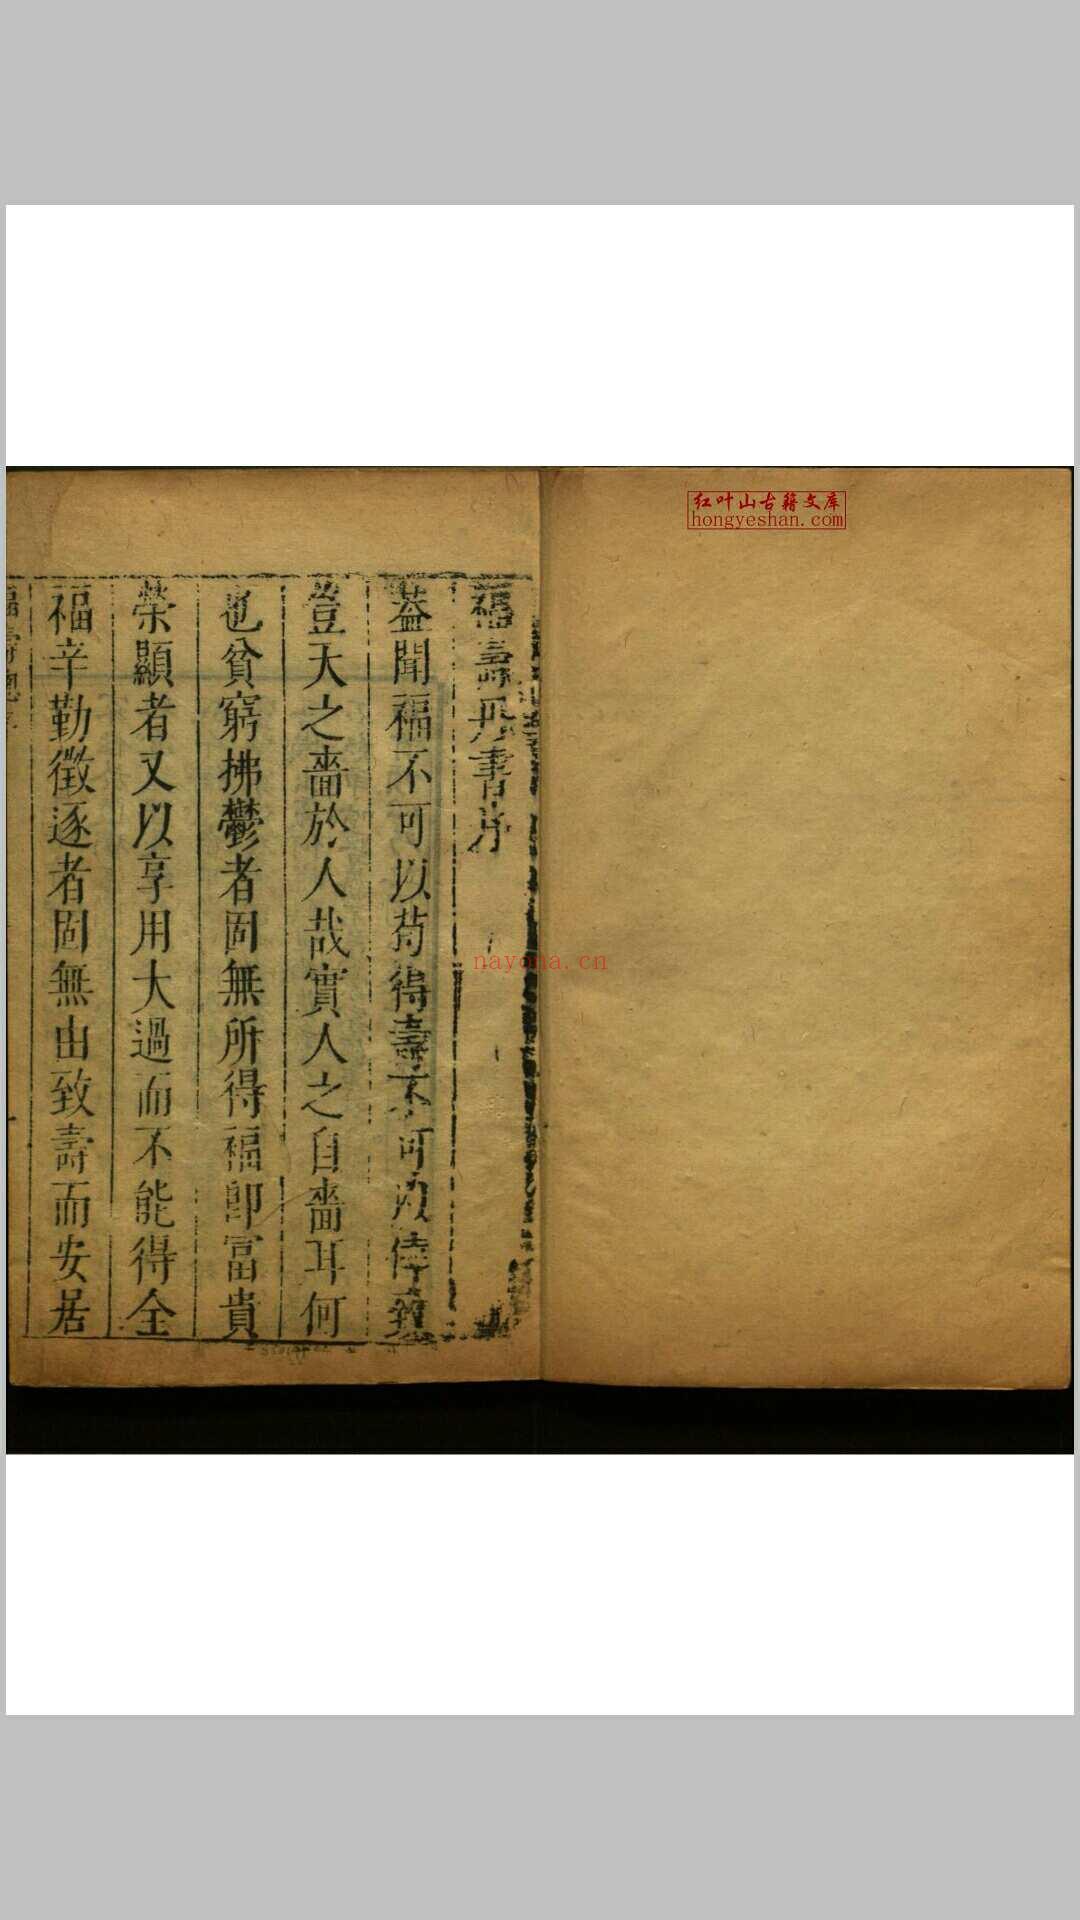 红叶山古籍文库
hongyeshan.com
福壽丹書序
蓋聞福不可以苟得壽不可以倖致
豈天之嗇於人哉實人之自嗇耳何
也貧窮拂鬱者固無所得福即富貴
榮顯者又以享用大過而不能得全
福辛勤徵逐者固無由致壽而安居
nayona.cn